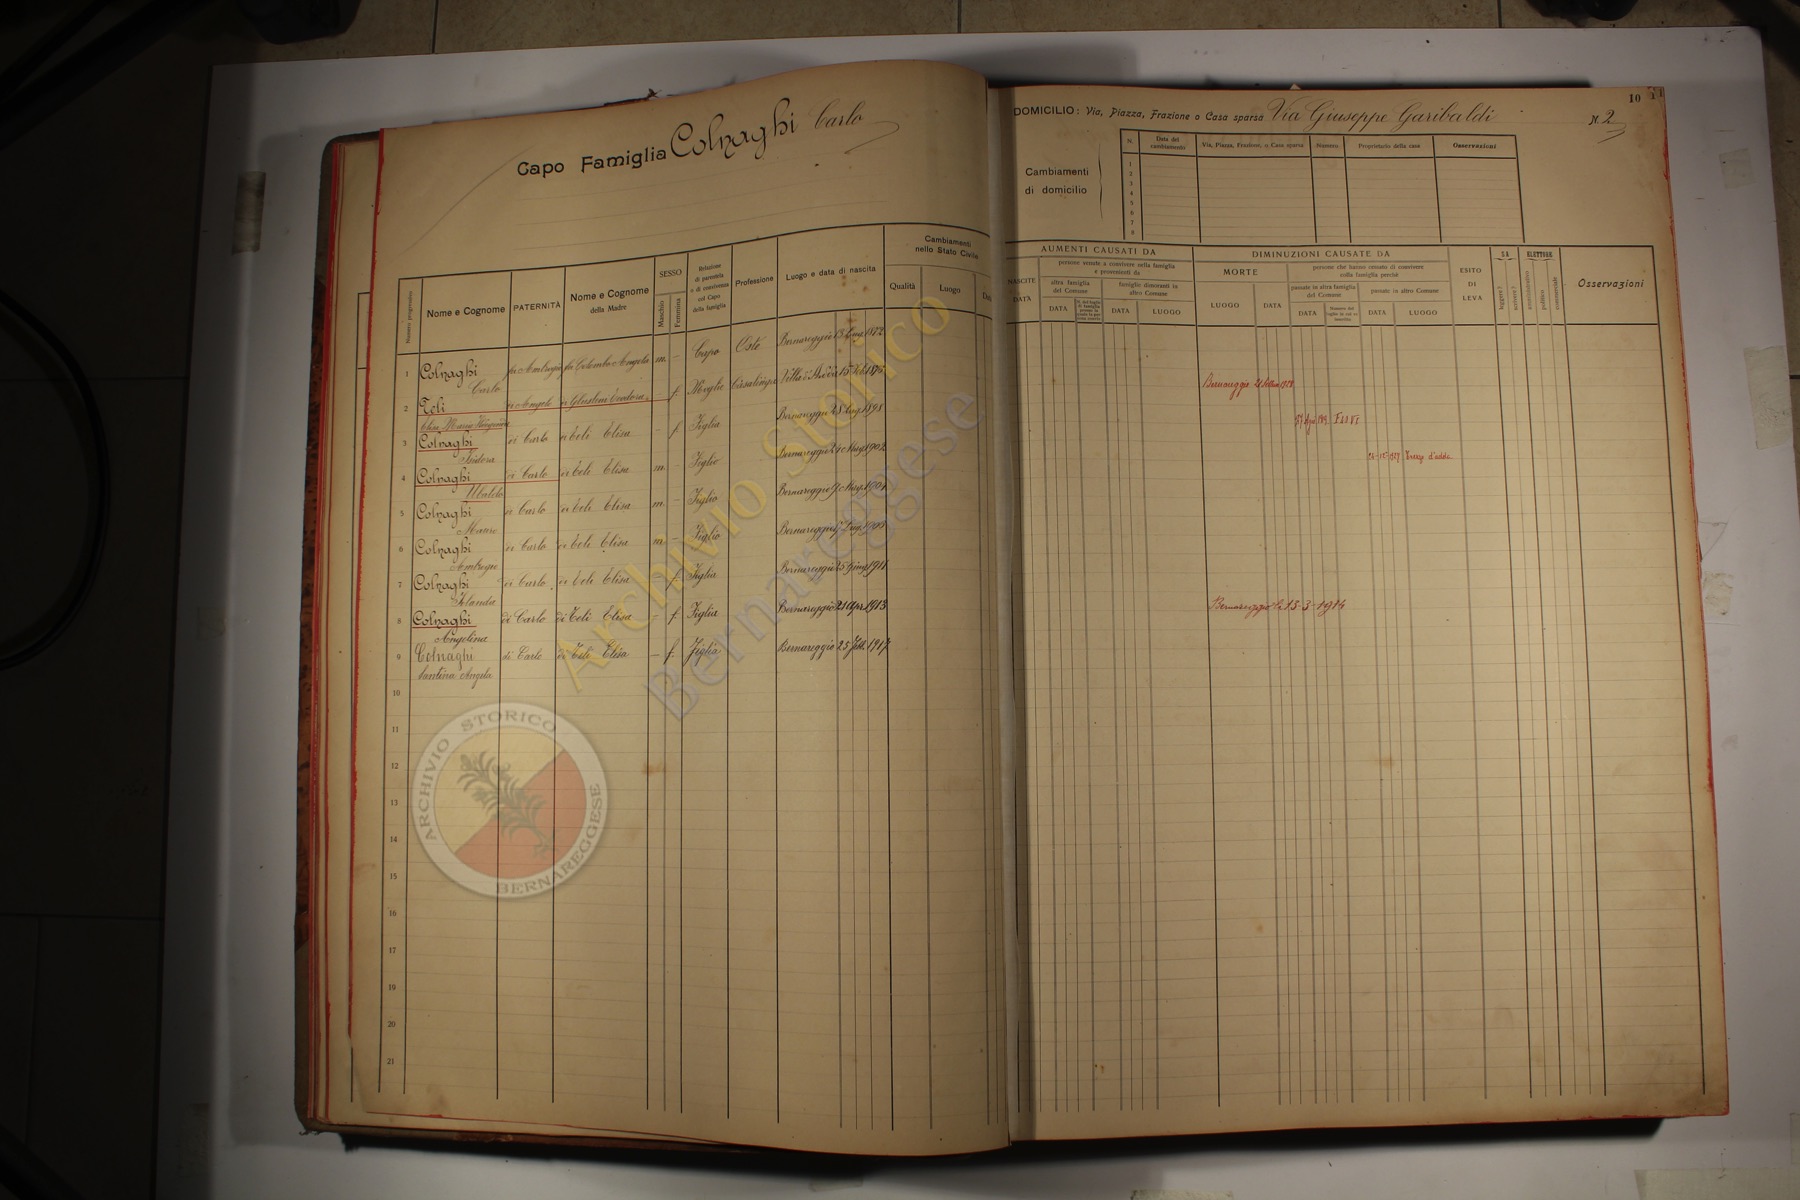 Capo Famiglia Colnaghi Carlo
Numero progressivo
Nome e Cognome
PATERNITÀ
Nome e Cognome
della Madre
SESSO
Maschio
Femmina
Relazione
di parentela
o di convivenza
col Capo
della famiglia
Professione
Luogo e data di nascita
Cambiamenti
nello Stato Civile
Qualità
Luogo
1 Colnaghi Carlo fu Ambrogio fu Colombo Angela m. — Capo Oste Bernareggio 1872
2 Teli di Angelo di f. Moglie Casalinga Villa d'Adda
3 Colnaghi Isidora di Carlo di Teli Elisa — f. Figlia Bernareggio 1898
4 Colnaghi Ubaldo di Carlo di Teli Elisa m. — Figlio Bernareggio 1902
5 Colnaghi Mauro di Carlo di Teli Elisa m. — Figlio Bernareggio 1904
6 Colnaghi Ambrogio di Carlo di Teli Elisa m — Figlio Bernareggio
7 Colnaghi Iolanda di Carlo di Teli Elisa f. Figlia Bernareggio 1911
8 Colnaghi Angelina di Carlo di Teli Elisa f. Figlia Bernareggio 21 apr. 1913
9 Colnaghi Santina Angela di Carlo di Teli Elisa — f. Figlia Bernareggio 25 1917
10
11
12
13
14
15
16
17
18
19
20
21
DOMICILIO: Via, Piazza, Frazione o Casa sparsa Via Giuseppe Garibaldi N. 2
10
Cambiamenti
di domicilio
N.
Data del
cambiamento
Via, Piazza, Frazione, o Casa sparsa
Numero
Proprietario della casa
Osservazioni
1
2
3
4
5
6
7
8
AUMENTI CAUSATI DA
NASCITE
DATA
persone venute a convivere nella famiglia
e provenienti da
altra famiglia
del Comune
famiglie dimoranti in
altro Comune
DATA
DATA
LUOGO
DIMINUZIONI CAUSATE DA
MORTE
LUOGO
DATA
persone che hanno cessato di convivere
colla famiglia perchè
passate in altra famiglia
del Comune
passate in altro Comune
DATA
DATA
LUOGO
ESITO
DI
LEVA
SA
leggere?
scrivere?
ELETTORE
amministrativo
politico
commerciale
Osservazioni
Bernareggio
d'Adda
Bernareggio li 15-3-1914
Archivio Storico
Bernareggese
ARCHIVIO STORICO
BERNAREGGESE